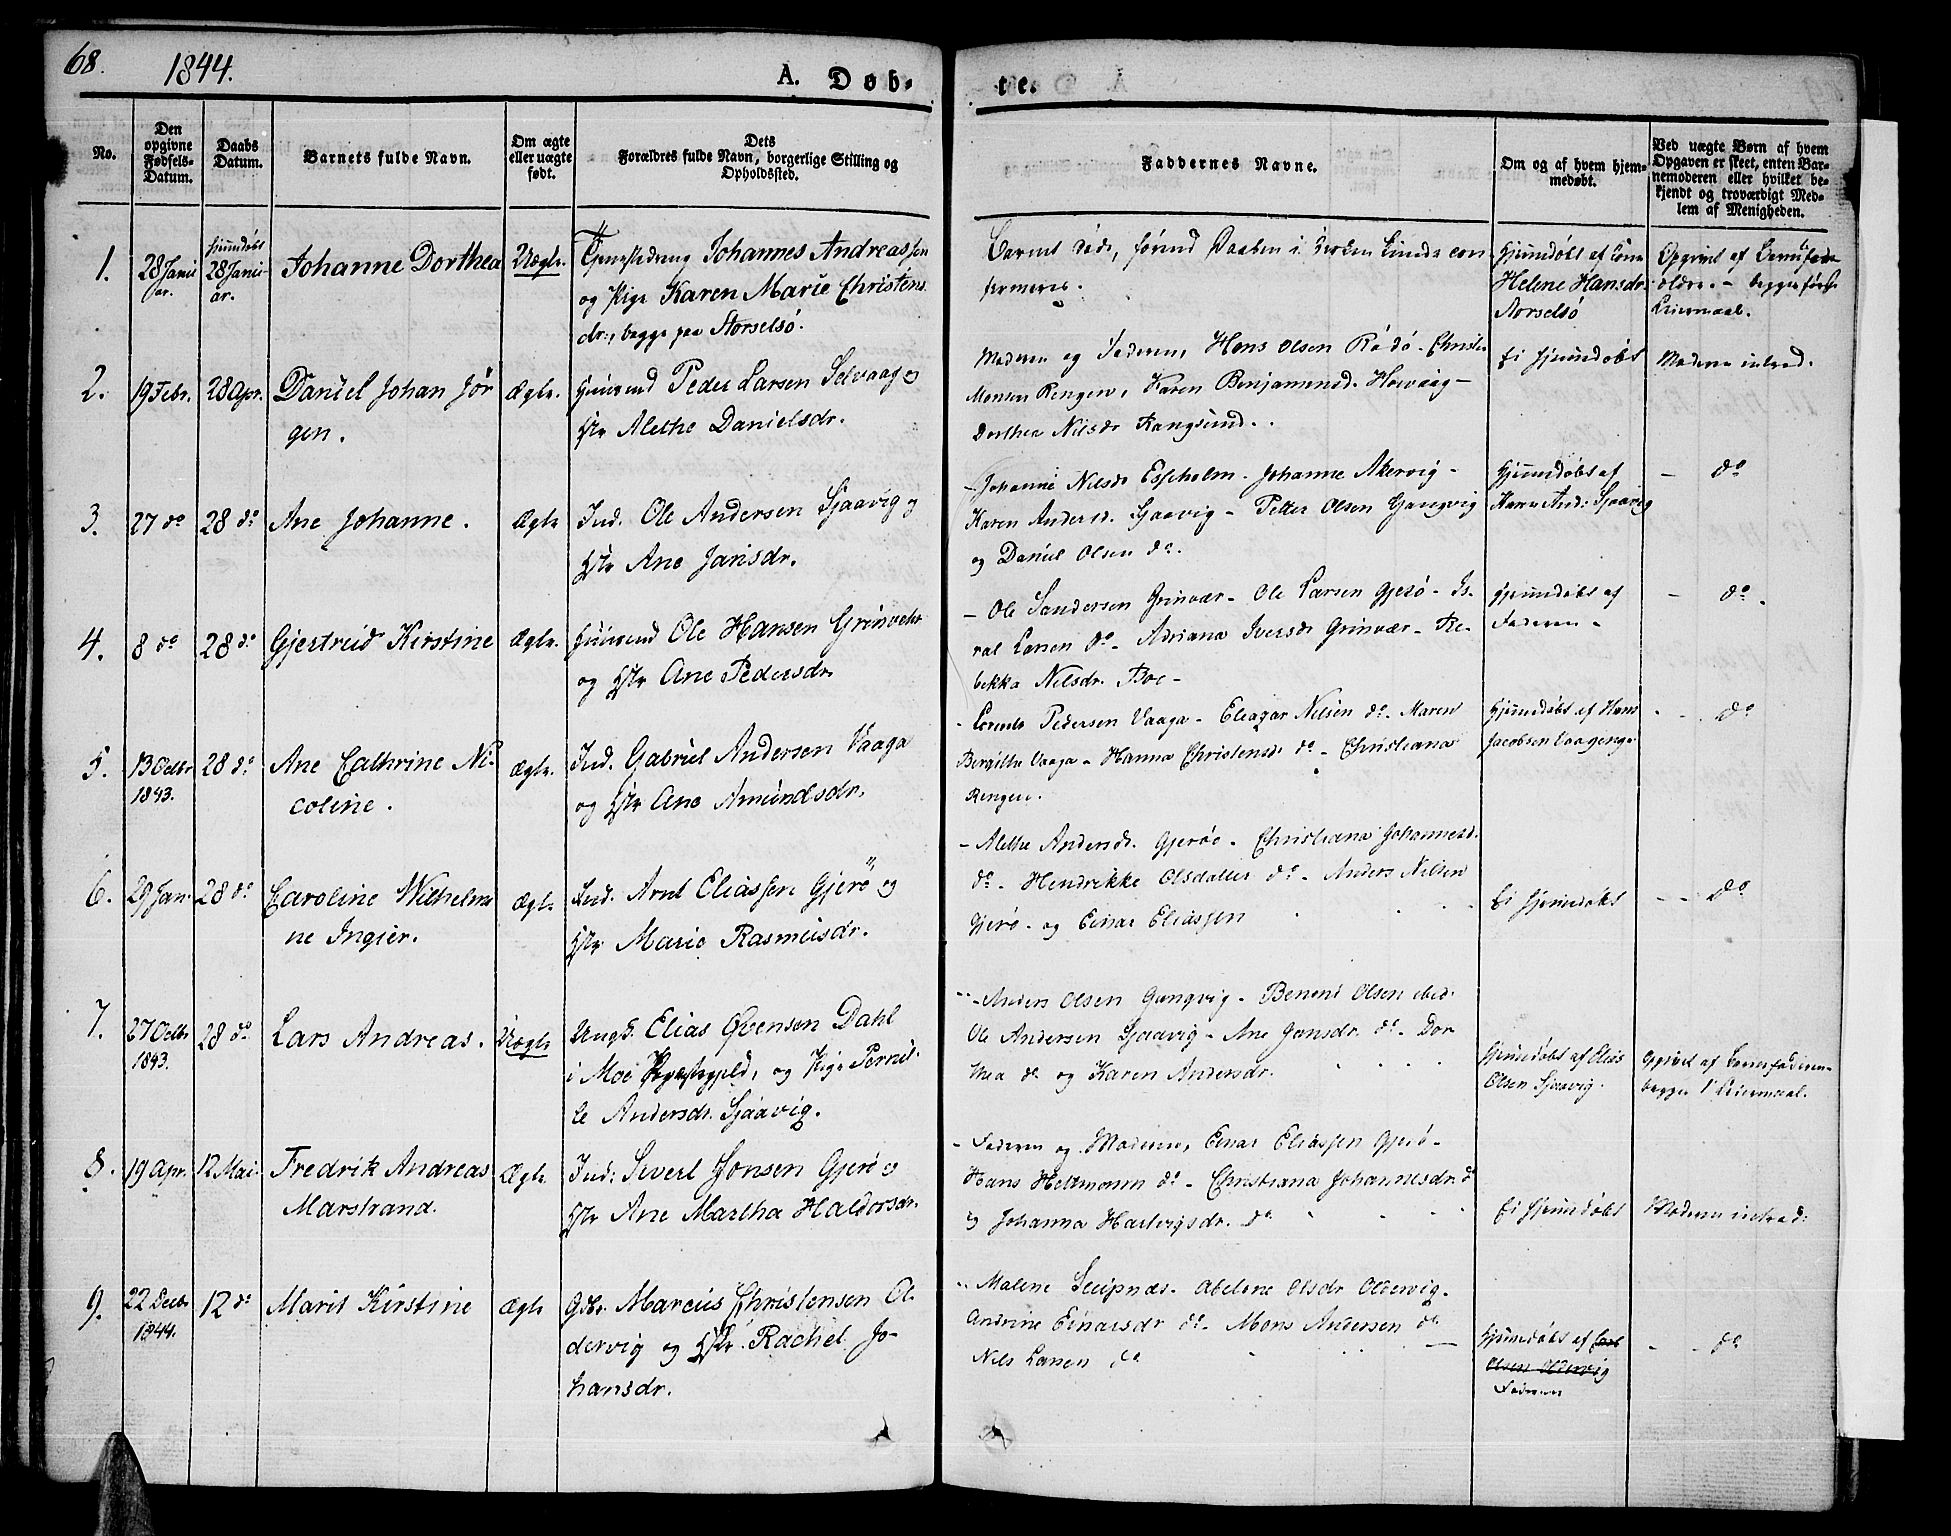 68.
1844.
A. Døb-
te.
No.
Den opgivne Fødsels-Datum.
Daabs Datum.
Barnets fulde Navn.
Om ægte eller uægte født.
Dets Forældres fulde Navn, borgerlige Stilling og Opholdssted.
Faddernes Navne.
Om og af hvem hjem-
medøbt.
Ved uægte Børn af hvem
Opgaven er skeet, enten Bar-
nemoderen eller hvilket be-
kjendt og troværdigt Med-
lem af Menigheden.
1.
28 Janu
ar.
hjemdøbt
28 Janu
ar.
Johanne Dorthea
Uægte.
Johannes Andreassen
og Pige Karen Marie Christens
dr., begge paa Storselsö.
Barnet døde, førend Daaben i Kirken kunde con
firmeres.
Hjemdøbt af
Helene Hansdr
Storselsö
Opgivet af Barnefor
ældre. - begges første
Leiermaal.
2.
19 Febr.
28 Apr.
Daniel Johan Jör
gen.
Ægte.
Huusmand Peder Larsen Selvaag og
Hstr Alethe Danielsdr.
Moderen og Faderen, Hans Olsen Rödö - Christen
Monsen Rengen, Karen Benjaminsd. Hovaag -
Dorthea Nilsdr Kangsund.
Ei hjemdøbt
Moderen introd.
3.
27 do
28 do
Ane Johanne.
Ægte
Ind. Ole Andersen Sjaavig og
Hstr Ane Jansdr.
- Johanne Nilsdr Esscholm - Johanne Akervig -
Karen Andersd. Sjaavig - Petter Olsen Gangvig
og Daniel Olsen do.
Hjemdøbt af
Karen And: Sjaavig
- do
4.
8 do
28 do
Gjertreid Kirstine
Ægte.
Huusmand Ole Hansen Grinvehr
og Hstr Ane Pedersdr.
- Ole Sandersen Grinvær - Ole Larsen Gjerö - Is-
rael Larsen do - Adriana Iversdr Grinvær - Re-
bekka Nilsdr. Boe -
Hjemdøbt af
Faderen -
- do -
5.
13 Octbr
1843.
28 do
Ane Cathrine Ni-
coline.
Ægte.
Ind. Gabriel Andersen Vaaga
og Hstr Ane Amundsdr.
- Lorents Pedersen Vaaga - Eleazar Nilsen do - Maren
Bergitha Vaaga - Hanna Christensdr do - Christiana
Rengen.
Hjemdøbt af Hans
Jacobsen Vaageng
- - do
6.
29 Jan.
28 do
Caroline Wilhelmi
ne Ingier.
Ægte
Ind. Arnt Eliassen Gjerö og
Hstr Marie Rasmusdr.
- Alethe Andersdr. Gjeröe - Christiana Johannesd.
do - Hendrikke Olsdatter do - Anders Nilsen
Gjerö - og Einar Eliassen
Ei hjemdøbt
- - do
7.
27 Octbr
1843.
28 do
Lars Andreas.
Uægte
Ungk. Elias Ovensen Dahl
i Moe Præstegjeld, og Pige Pernil-
le Andersdr. Sjaavig.
- Anders Olsen Gangvig - Benont Olsen ibid.
Ole Andersen Sjaavig - Ane Jonsdr. do - Dor
thea do og Karen Andersdr.
Hjemdøbt af Elias
Olsen Sjaavig.
Opgivet af Barnefaderen-
begges 1ste Leiermaal.
8.
19 Apr.
12 Mai.
Fredrik Andreas
Marstrand.
Ægte
Ind: Sivert Jonsen Gjerö og
Hstr Ane Martha Haldorsdr.
- Faderen og Moderen, Einar Eliassen Gjerö -
Hans Heltmann do - Christiana Johannesdr. do
og Johanna Hartvigsdr. do
Ei hjemdøbt
Moderen introd:
9.
22 Decbr
1844.
12 do
Marit Kirstine
Ægte
Gbr. Marcus Christensen Ol-
dervig og Hstr. Rachel Jo-
hansdr.
- Malene Leipnæs. Abelone Olsdr Oldervig.
Andrine Einarsdr do - Mons Andersen do
Nils Larsen do
Hjemdøbt af
Olsen Oldervig
Faderen
- - do